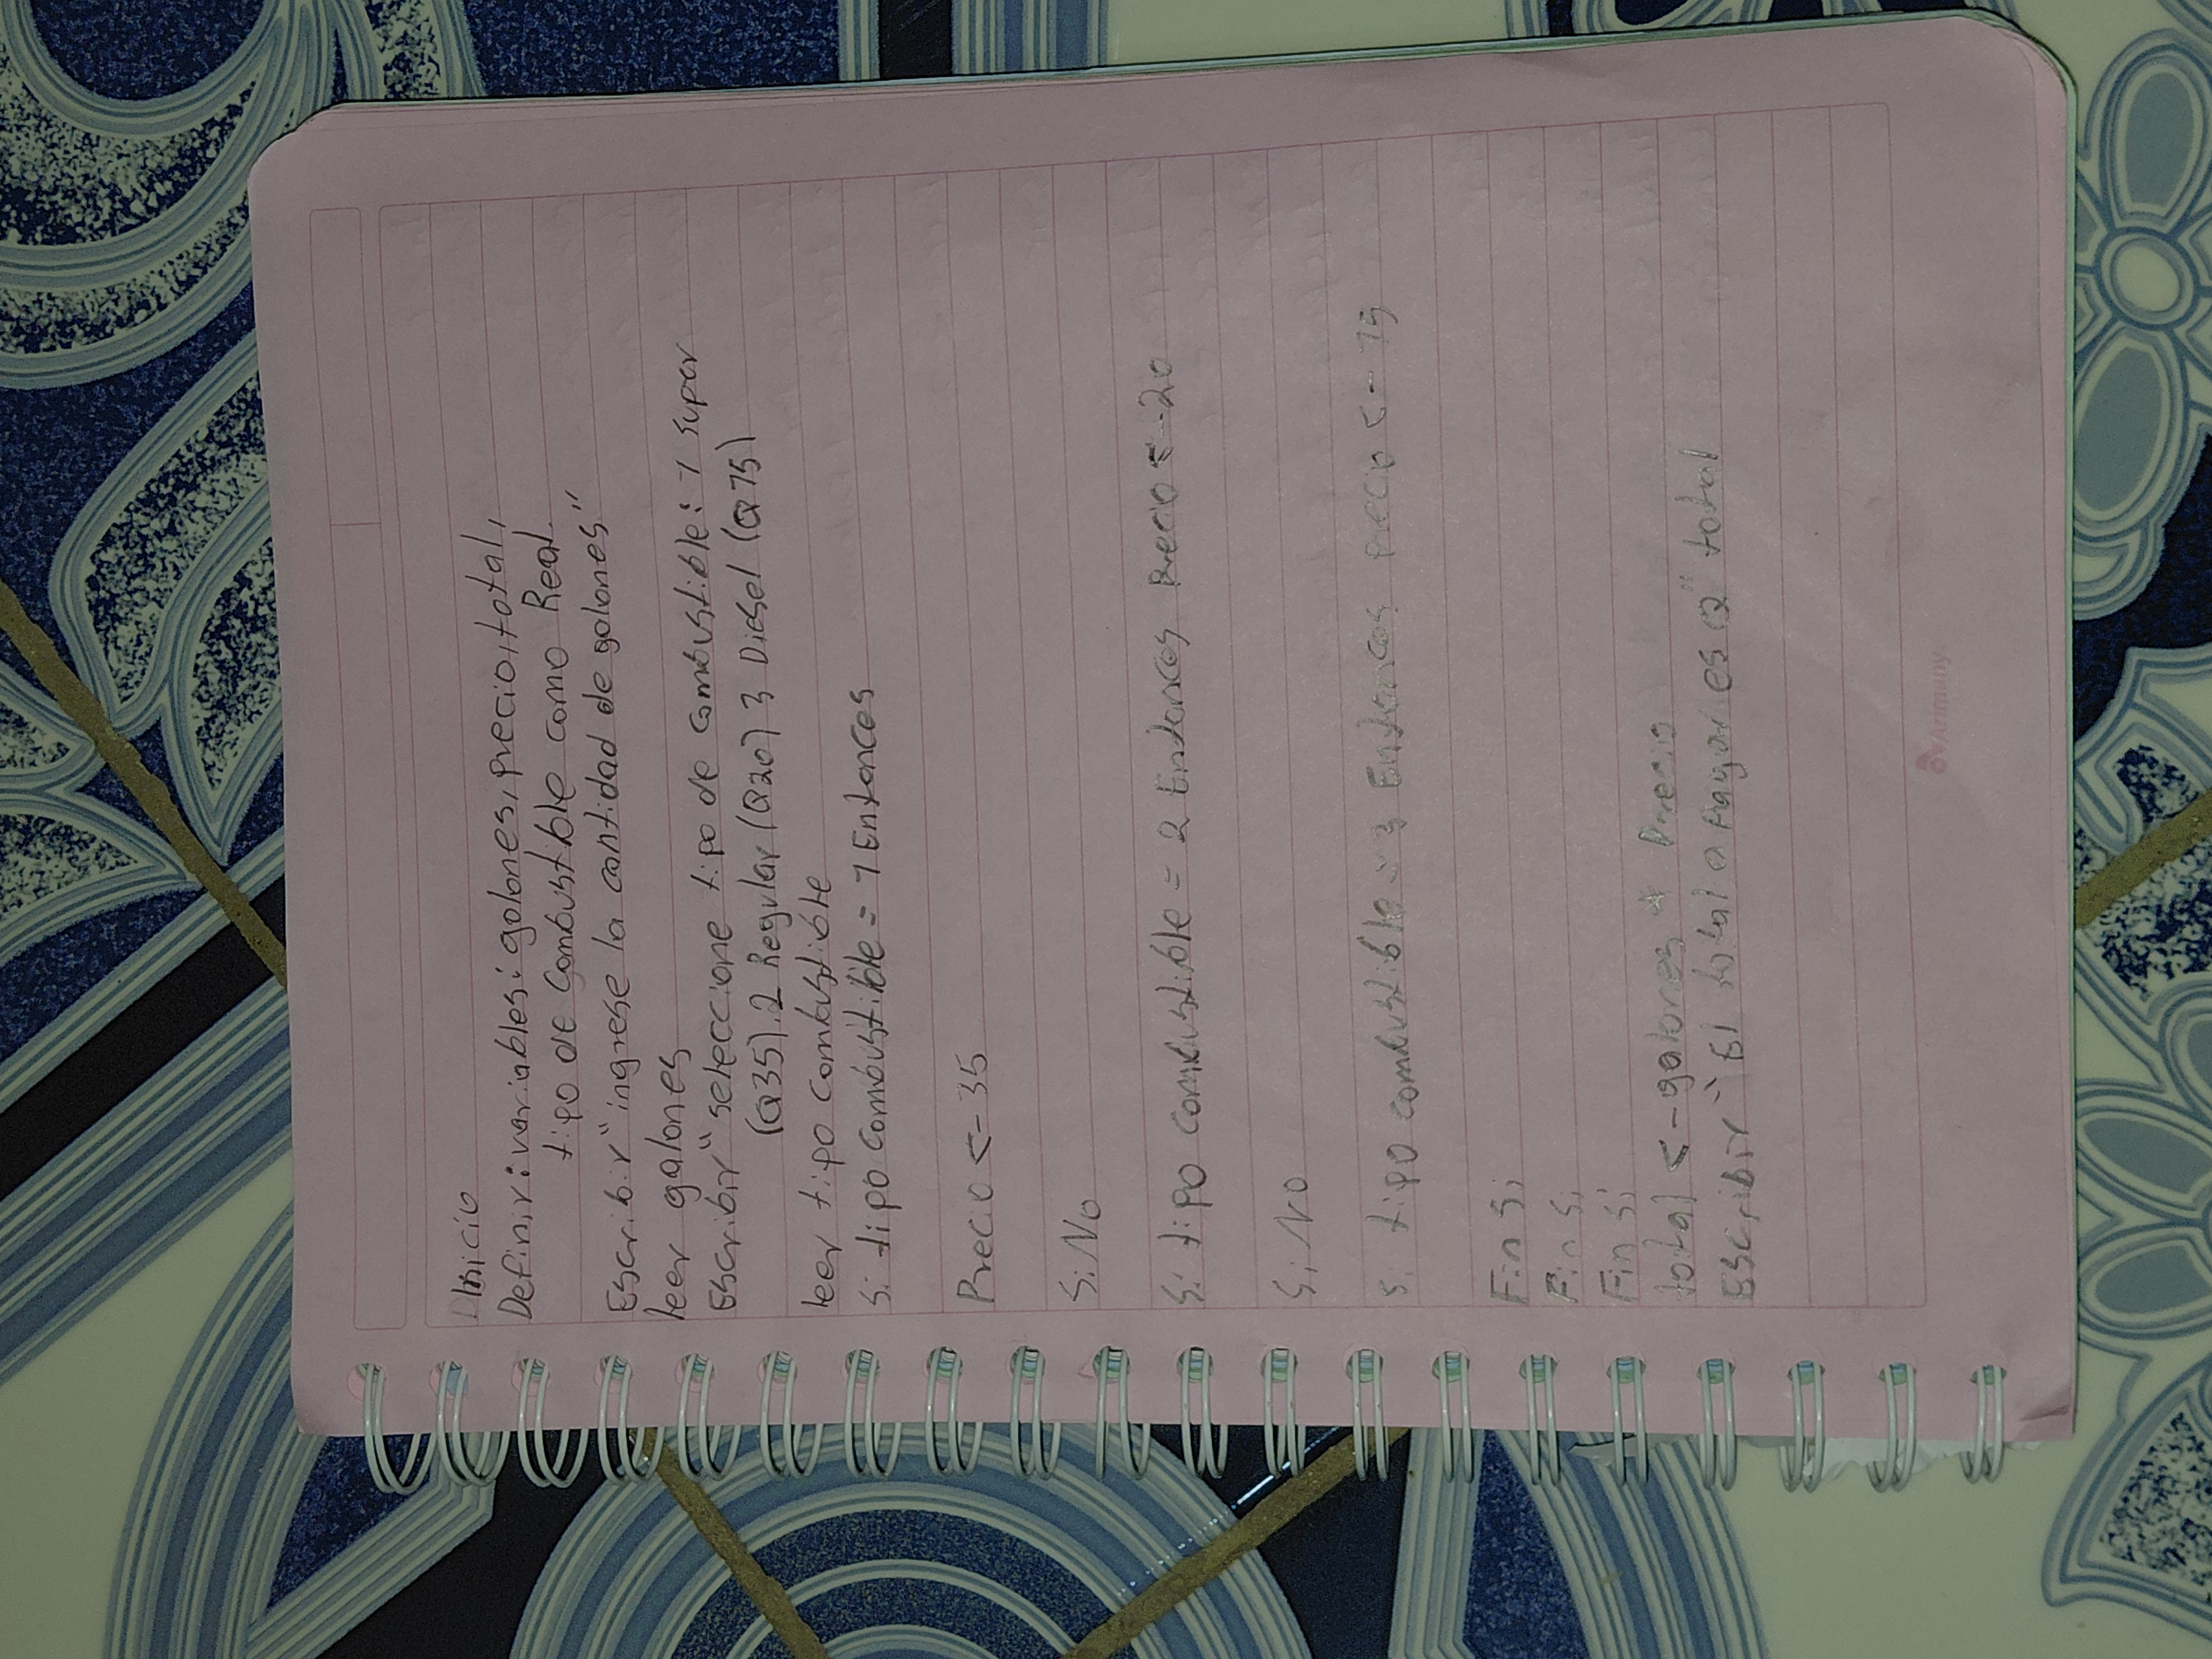 Inicio
Definir: variables: galones, precio, total,
tipo de Combustible como Real
Escribir "ingrese la cantidad de galones"
leer galones
Escribir "seleccione tipo de combustible: 1 super
(Q35).2 Regular (Q20) 3 Diesel (Q75)
leer tipo combustible
Si tipo combustible = 1 Entonces
Precio <- 35
SiNo
Si tipo combustible = 2 Entonces Precio <- 20
SiNo
Si tipo combustible = 3 Entonces precio <- 75
Fin Si
Fin Si
Fin Si
total <- galones * Precio
Escribir "El total a Pagar es Q" total
Arimany